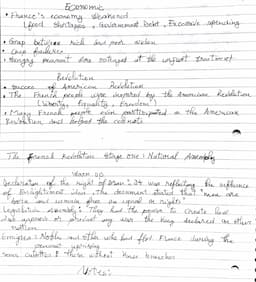 Economic
• France's economy weakened
(food shortages, Government Debt, Excessive spending
• Gap between rich and poor widen
• Crop failure
• Hungry peasant were outraged at the unjust treatment
Revolution
• Success of American Revolution
• The French people were inspired by the American Revolution
(Liberty, Equality, Freedom)
• Many French people even participated in the American
Revolution and helped the colonists
The French Revolution Stage one: National Assembly
Declaration of the right of Man: It was reflecting the influence
of Enlightenment ideas. The document stated that "men are
born and remain free and equal in rights"
Legislative Assembly: They had the power to create laws
and approve or prevent any war the king declared on other
nation
Emigres: Nobles and other who had fled France during the
peasant uprising
Sans culottes: those without knee breeches
Notes: